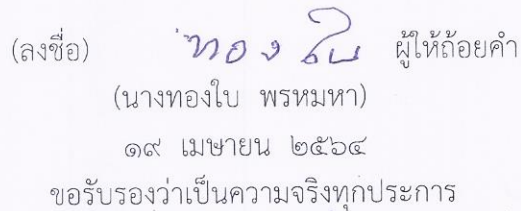 (ลงชื่อ) ทองใบ ผู้ให้ถ้อยคำ
(นางทองใบ พรหมหา)
๑๙ เมษายน ๒๕๖๔
ขอรับรองว่าเป็นความจริงทุกประการ